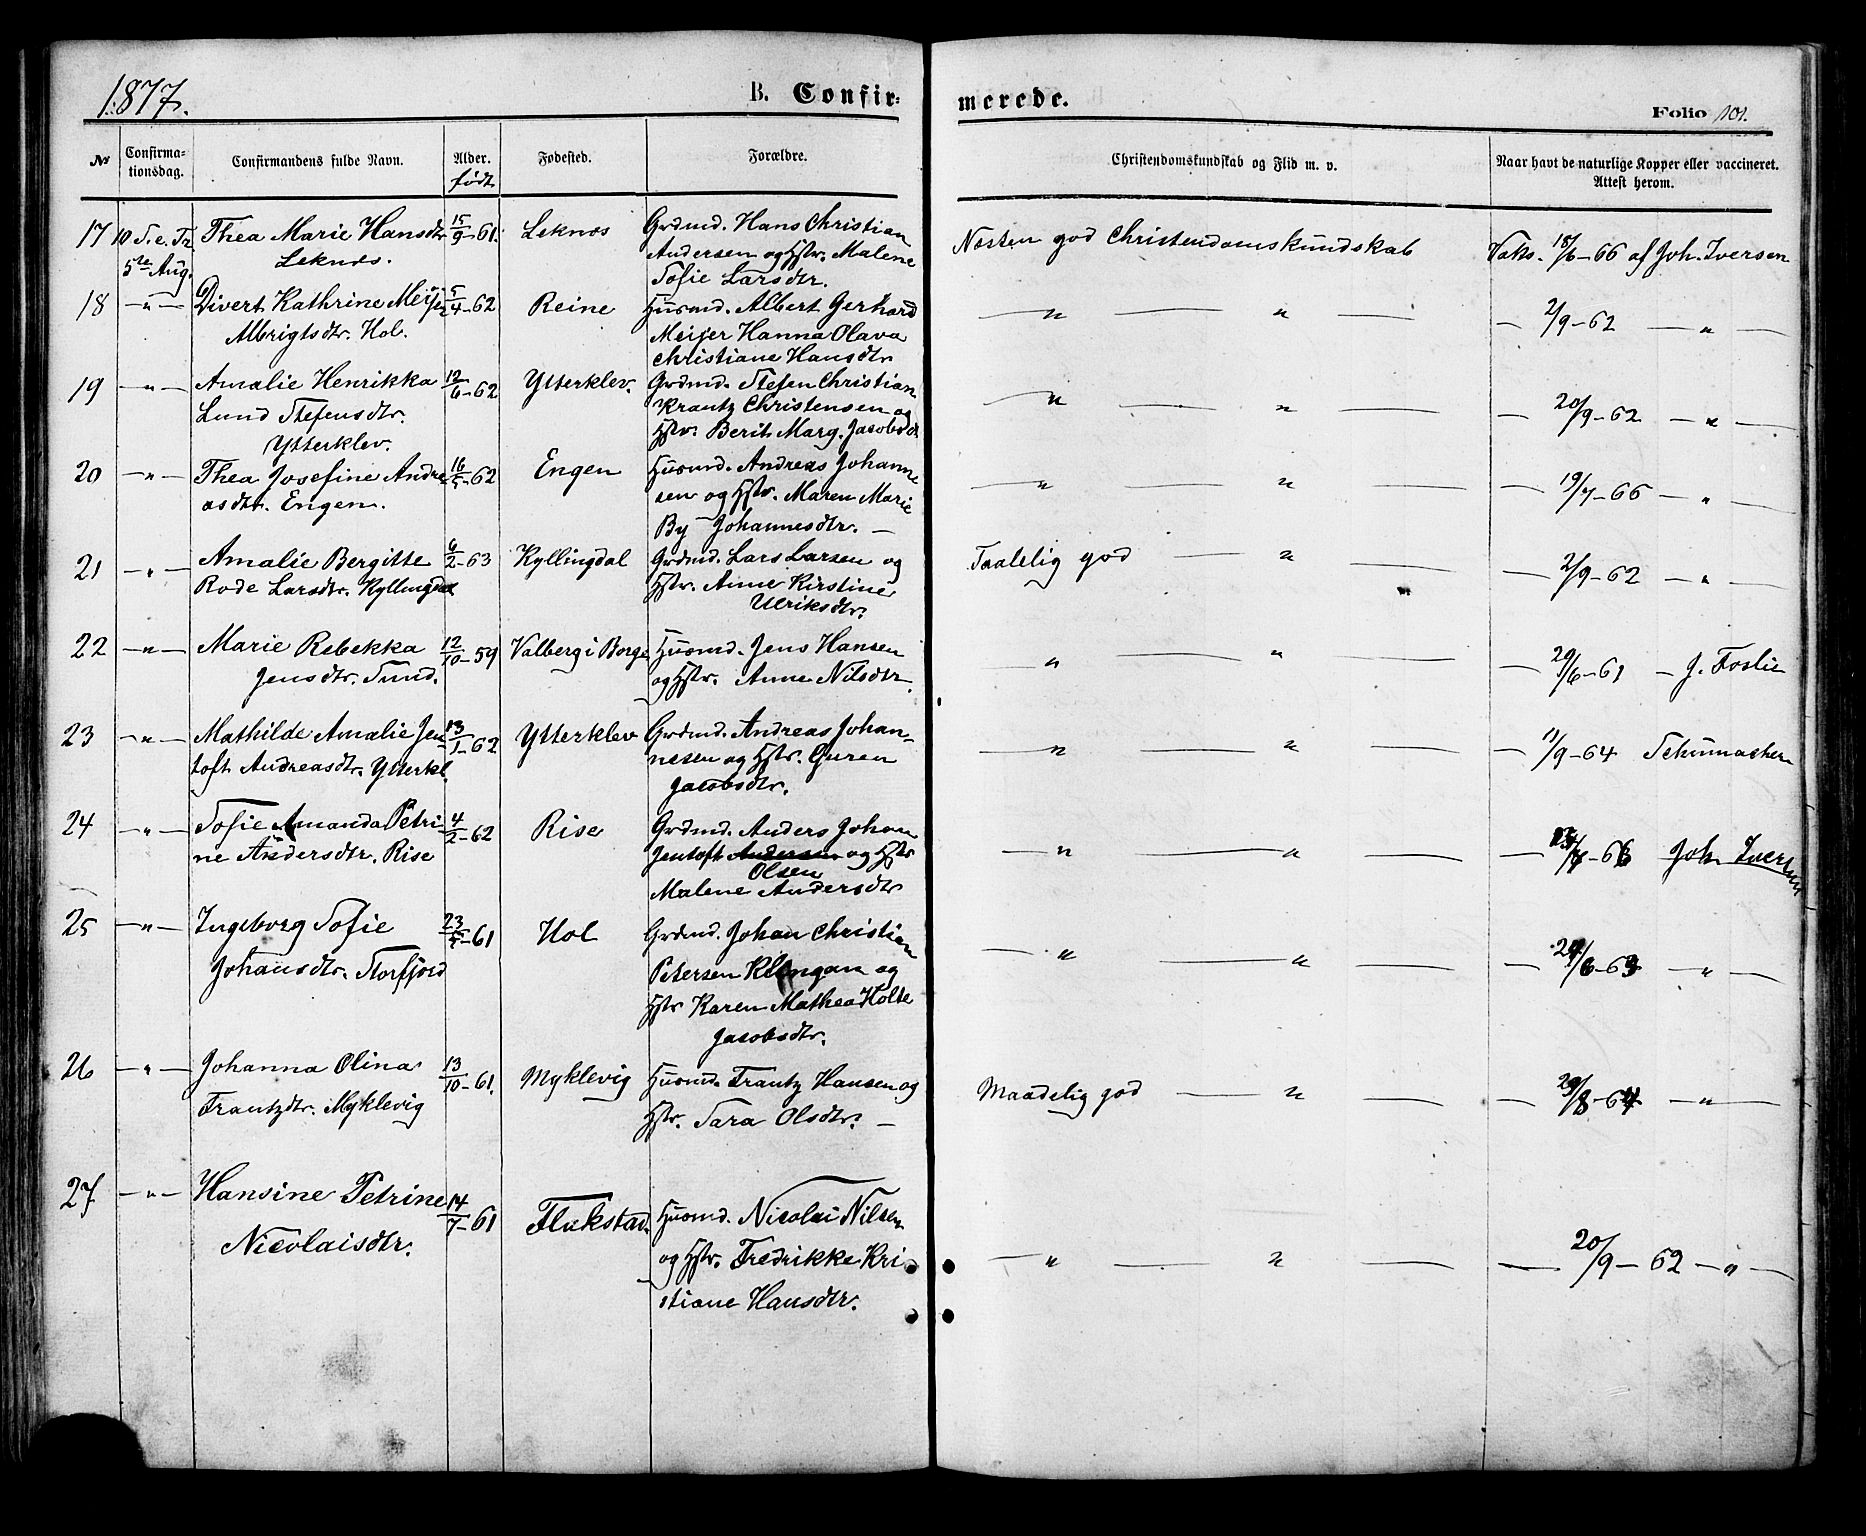 1877.
B. Confir-
merede.
Folio 101.
№
Confirma-
tionsdag.
Confirmandens fulde Navn.
Alder.
født
Fødested.
Forældre.
Christendomskundskab og Flid m. v.
Naar havt de naturlige Kopper eller vaccineret.
Attest herom.
17 10 S. e. Tr. Thea Marie Hansdtr 15/9-61. Leknes Grdmd. Hans Christian Nesten god Christendomskundskab Vaks. 18/6-66 af Joh. Iversen
5te Aug. Leknes. Andersen og Hstr. Malene
Sofie Larsdtr.
18 -"- Divert Kathrine Meijer 5/4-62 Reine Husmd. Albert Gerhard " " - 2/9-62 - " -
Albrigtsdtr. Hol. Meijer Hanna Olava
Christiane Hansdtr
19 -"- Amalie Henrikka 12/6-62 Ytterklev. Grdmd. Stefen Christian " " - 20/9-62 - " -
Lund Stefensdtr. Krantz Christensen og
Ytterklev. Hstr. Berit Marg. Jacobsdt
20 -"- Thea Josefine Andre 16/5-62 Engen Husmd. Andreas Johanne " " - 19/7-66 - " -
asdtr. Engen. sen og Hstr. Maren Marie
By Johannesdtr. -
21 -"- Amalie Bergitte 6/2-63 Kyllingdal Grdmd. Lars Larsen og Taalelig god - " - 2/9-62 - " -
Rode Larsdtr. Kyllingdal Hstr. Anne Kirstine
Ulriksdtr.
22 -"- Marie Rebekka 12/10-59 Valberg i Borge Husmd. Jens Hansen " " - 29/6-61 - J. Foslie
Jensdtr. Sund. og Hstr. Anne Nilsdtr.
23 -"- Mathilde Amalie Jen 13/1-62 Ytterklev Grdmd. Andreas Johan- " " - 11/9-64 Schumacher
toft Andreasdtr. Ytterkl. nesen og Hstr. Guren
Jacobsdtr.
24 -"- Sofie Amanda Petri- 4/2-62 Rise Grdmd. Anders Johan " " - /7-66 Joh Iversen
ne Andersdtr. Rise Jentoft Andersen og Hstr
Olsen
Malene Andersdtr
25 -"- Ingeborg Sofie 23/5-61 Hol Grdmd. Johan Christian " " - 24/6-63 - " -
Johansdtr. Storfjord Petersen Klingan og
Hstr Karen Mathea Holte
Jacobsdtr.
26 -"- Johanna Olina 13/10-61. Myklevig Husmd. Frantz Hansen og Maadelig god - " - 29/8-64 - " -
Frantzdtr. Myklevig Hstr. Sara Olsdtr. -
27 -"- Hansine Petrine 14/7-61 Flakstad. Husmd. Nicolai Nilsen " " - 20/9-62 - " -
Nicolaisdtr. og Hstr. Fredrikke Kri
stiane Hansdtr.